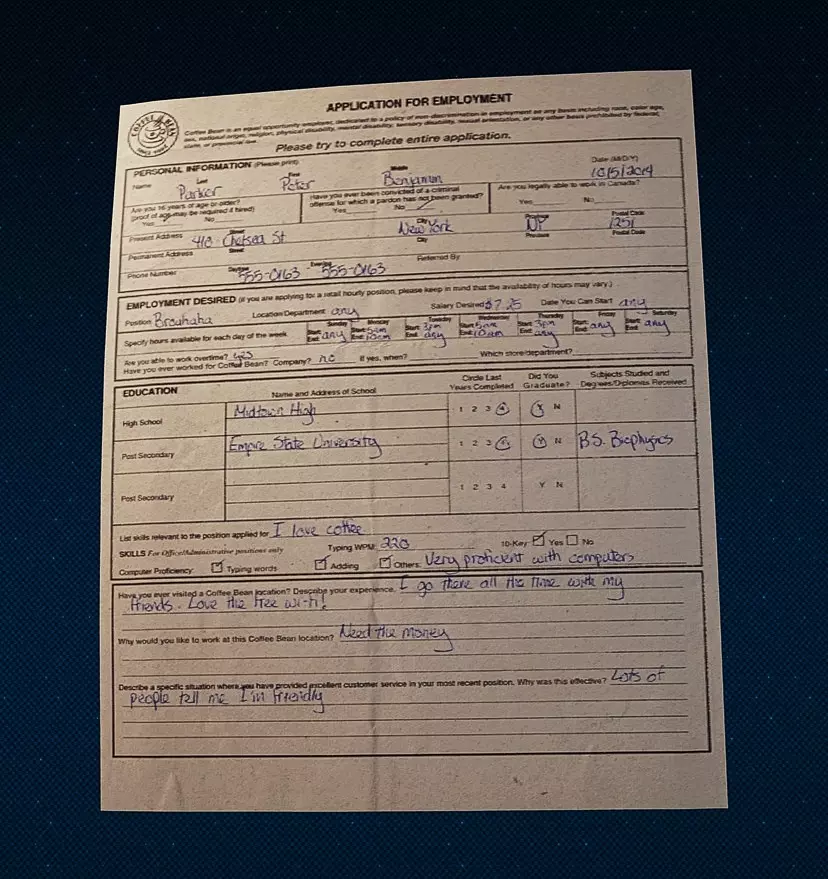 APPLICATION FOR EMPLOYMENT
COFFEE BEAN
Coffee Bean is an equal opportunity employer, dedicated to a policy of non-discrimination in employment on any basis including race, color, age,
sex, national origin, religion, physical disability, mental disability, sensory disability, sexual orientation, or any other basis prohibited by federal,
state, or provincial law.
Please try to complete entire application.
PERSONAL INFORMATION (Please print)
Last First Middle Date (M/D/Y)
Name Parker Peter Benjamin 10/5/2014
Are you 16 years of age or older? Have you ever been convicted of a criminal Are you legally able to work in Canada?
(proof of age may be required if hired) offense for which a pardon has not been granted?
Yes No Yes No Yes No
Street City Province Postal Code
Present Address 410 Chelsea St New York NP 1251
Street City Province Postal Code
Permanent Address
Daytime Evening Referred By
Phone Number 555-0163 555-0163
EMPLOYMENT DESIRED (If you are applying for a retail hourly position, please keep in mind that the availability of hours may vary.)
Position Brouhaha Location/Department any Salary Desired $7.25 Date You Can Start any
Sunday Monday Tuesday Wednesday Thursday Friday Saturday
Specify hours available for each day of the week Start: any Start: 5am Start: 3pm Start: 5am Start: 3pm Start: any Start: any
End: End: 10am End: any End: 10am End: any End: End:
Are you able to work overtime? yes
Have you ever worked for Coffee Bean? Company? no If yes, when? Which store/department?
EDUCATION Name and Address of School Circle Last Years Completed Did You Graduate? Subjects Studied and Degrees/Diplomas Received
High School Midtown High 1 2 3 4 Y N
Post Secondary Empire State University 1 2 3 4 Y N B.S. Biophysics
Post Secondary 1 2 3 4 Y N
List skills relevant to the position applied for I love coffee
SKILLS For Office/Administrative positions only Typing WPM: 220 10-Key: Yes No
Computer Proficiency: Typing words Adding Others: Very proficient with computers
Have you ever visited a Coffee Bean location? Describe your experience. I go there all the time with my
friends. Love the free wi-fi!
Why would you like to work at this Coffee Bean location? Need the money
Describe a specific situation where you have provided excellent customer service in your most recent position. Why was this effective? Lots of
people tell me I'm friendly